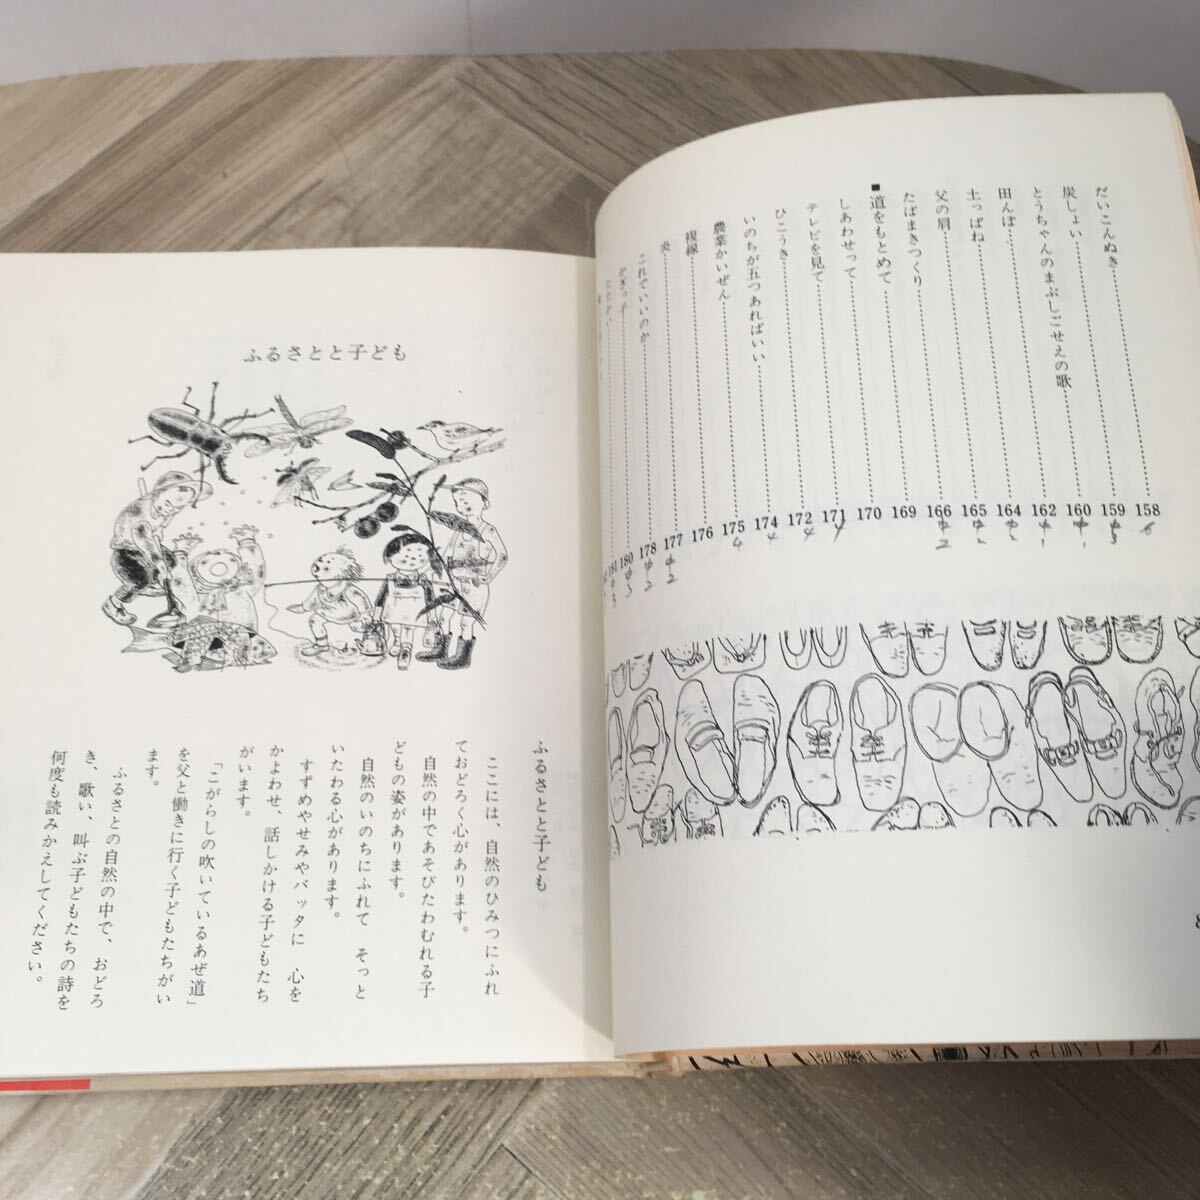 だいこんぬき……158
6
炭しょい……159
中3
とうちゃんのまぶしごせえの歌……160
中1
田んぼ……162
中1
土っぱね……164
中2
父の肩……165
中2
たばまきつくり……166
中2
■道をもとめて……169
しあわせって……170
テレビを見て……171
4
ひこうき……172
4
いのちが五つあればいい……174
4
農業かいぜん……175
4
複線……176
炎……177
中2
これでいいのか……178
中2
かぎっ子……180
中3
181
中3
ふるさとと子ども
ふるさとと子ども
ここには、自然のひみつにふれ
ておどろく心があります。
自然の中であそびたわむれる子
どもの姿があります。
自然のいのちにふれて そっと
いたわる心があります。
すずめやせみやバッタに 心を
かよわせ、話しかける子どもたち
がいます。
「こがらしの吹いているあぜ道」
を父と働きに行く子どもたちがい
ます。
ふるさとの自然の中で、おどろ
き、歌い、叫ぶ子どもたちの詩を
何度も読みかえしてください。